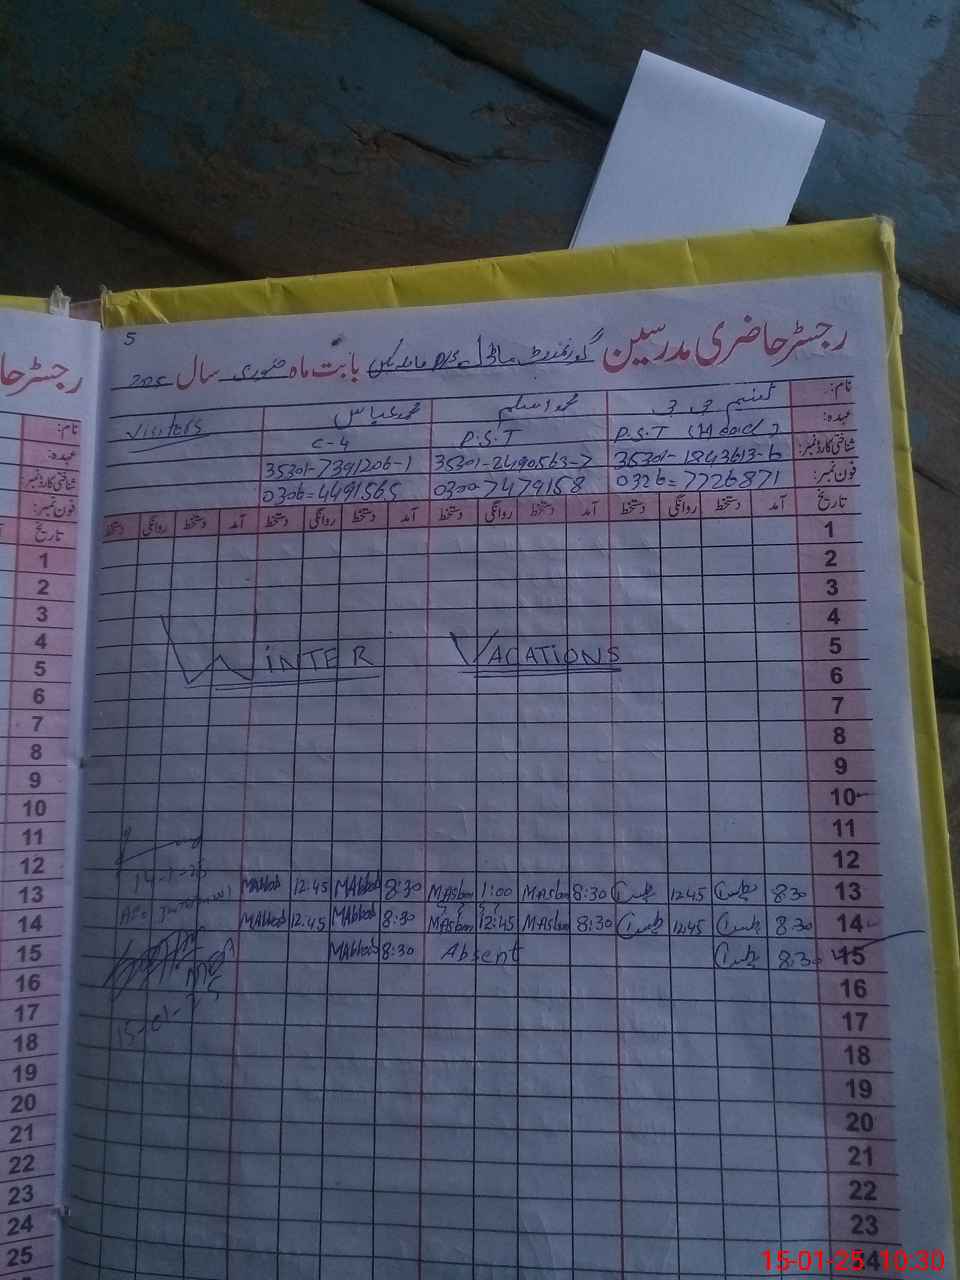 5
رجسٹر حاضری مدرسین گورنمنٹ ماڈل بابت ماہ جنوری سال 2025
رجسٹر حا
نام: محمد اسلم محمد عباس Visitors
عہدہ: P.S.T (Head) P.S.T C-4
شناختی کارڈ نمبر: 35301-1843613-6 35301-2490563-7 35301-7391206-1
فون نمبر: 0326=7726871 0300-7479158 0306=4491565
تاریخ آمد دستخط روانگی دستخط آمد دستخط روانگی دستخط آمد دستخط روانگی دستخط آمد دستخط روانگی دستخط
نام:
عہدہ:
شناختی کارڈ نمبر:
فون نمبر:
تاریخ
1
2
3
4
5
WINTER VACATIONS
6
7
8
9
10
11
12
14-1-25
13 8:30 12:45 8:30 MAslam 1:00 MAslam 8:30 12:45
14 8:30 12:45 8:30 MAslam 12:45 MAslam 8:30 12:45
15 8:30 Absent 8:30
15-01-25
16
17
18
19
20
21
22
23
24
1
2
3
4
5
6
7
8
9
10
11
12
13
14
15
16
17
18
19
20
21
22
23
24
25
15-01-25 10:30